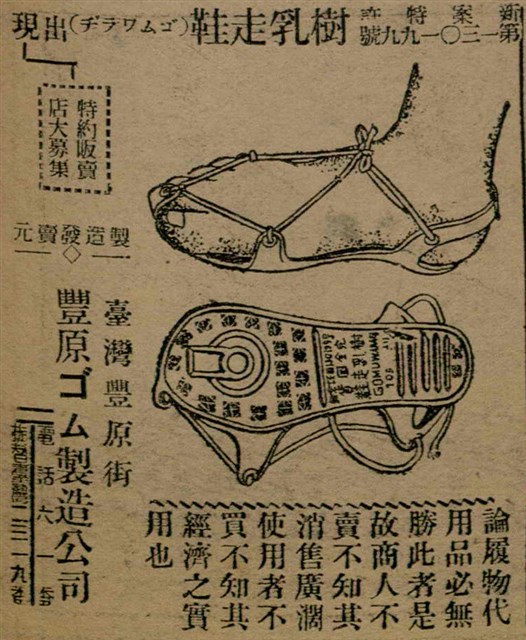 新案特許
第一三〇一九九號
樹乳走鞋(ゴムワラヂ)出現
特約販賣
店大募集
論履物代
用品必無
勝此者是
故商人不
賣不知其
消售廣濶
使用者不
買不知其
經濟之實
用也
製造發賣元
臺灣豐原街
豐原ゴム製造公司
電話六一番